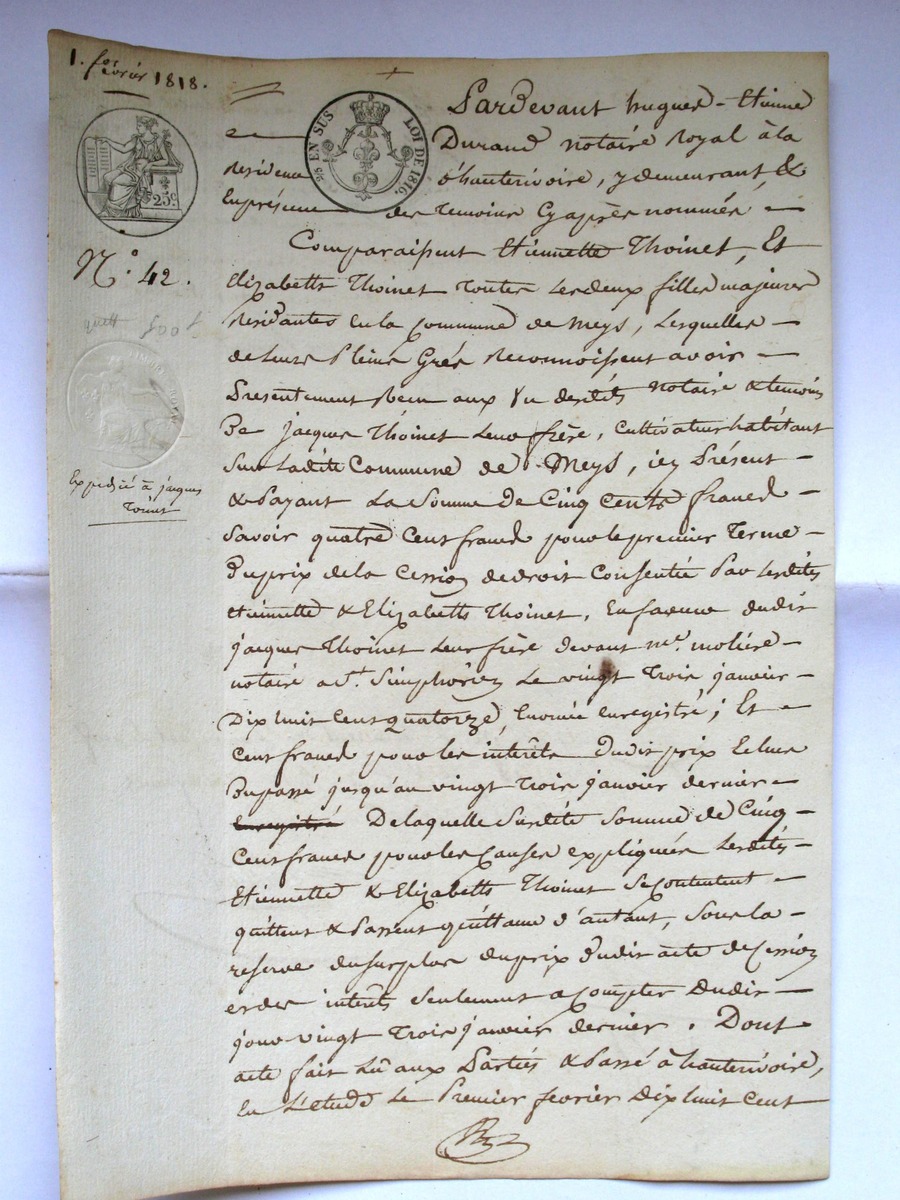 1.er février 1818.
Pardevant hugues-Etienne
Durand notaire Royal à la
EN SUS LOI DE 1816.
25c
résidence d'hauterivoire, y demeurant, &
En présence des temoins Cy après nommés —
N.o 42.
Comparaissent Etiennette Thoinet, Et
Elizabeth Thoinet toutes les deux filles majeures
residantes en la Commune de Meys, Lesquelles —
quitt 500 f
de leurs pleins Grés Reconnoissent avoir —
Presentement Recu aux vu desdits notaire & temoins
De jacques Thoinet Leur frère, Cultivateur habitant
Sur Ladite Commune de Meys, icy Présent —
Expedié à jacques
Toinet
& Payant La Somme de Cinq Cents francs —
Savoir quatre Cent francs pour le premier terme —
Du prix de la Cession de droit Consentie Par Lesdites
Etiennette & Elizabeth Thoinet, En faveur dudit
jacques Thoinet Leur frère devant me. molière —
notaire a St. Simphorien Le vingt trois janvier —
Dix huit Cent quatorze, Enregistré; Et —
Cent francs pour les intérêts Dudit prix Echus
Du passé jusqu'au vingt trois janvier dernier —
Enregistré De laquelle Susdite Somme de Cinq —
Cent francs pour les Causes expliquées Lesdites —
Etiennette & Elizabeth Thoinet Se Contentent —
quittent & Passent quittance d'autant, Sous la —
reserve du surplus du prix Dudit acte de Cession
et des intérêts Seulement a Compter Dudit —
jour vingt trois janvier dernier. Dont
acte fait Lu aux Parties & Passé à hauterivoire,
En L'etude Le Premier fevrier Dix huit Cent